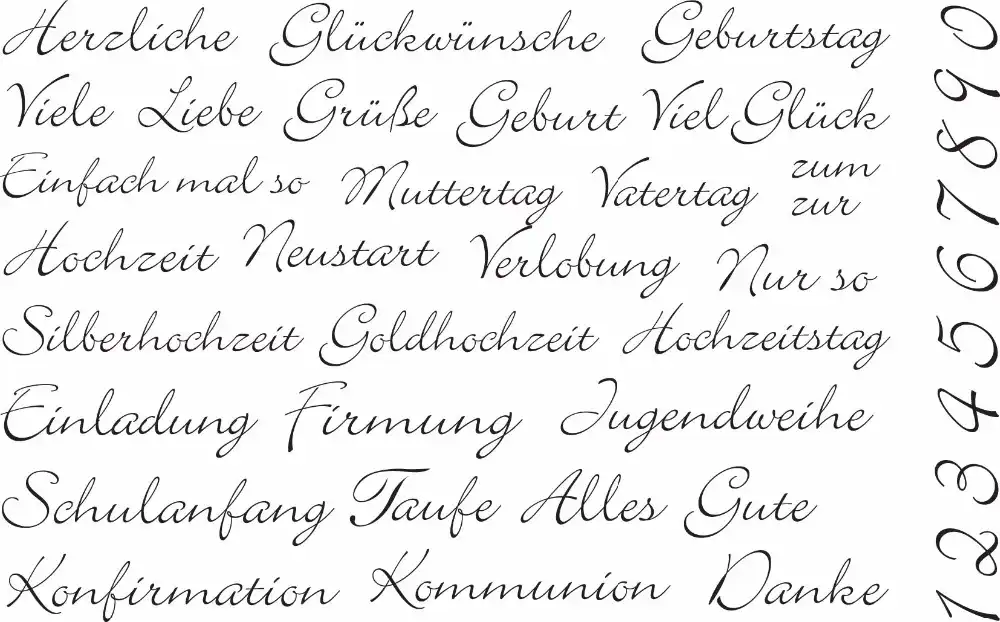 Herzliche Glückwünsche Geburtstag
Viele Liebe Grüße Geburt Viel Glück
Einfach mal so Muttertag Vatertag zum
zur
Hochzeit Neustart Verlobung Nur so
Silberhochzeit Goldhochzeit Hochzeitstag
Einladung Firmung Jugendweihe
Schulanfang Taufe Alles Gute
Konfirmation Kommunion Danke
1 2 3 4 5 6 7 8 9 0